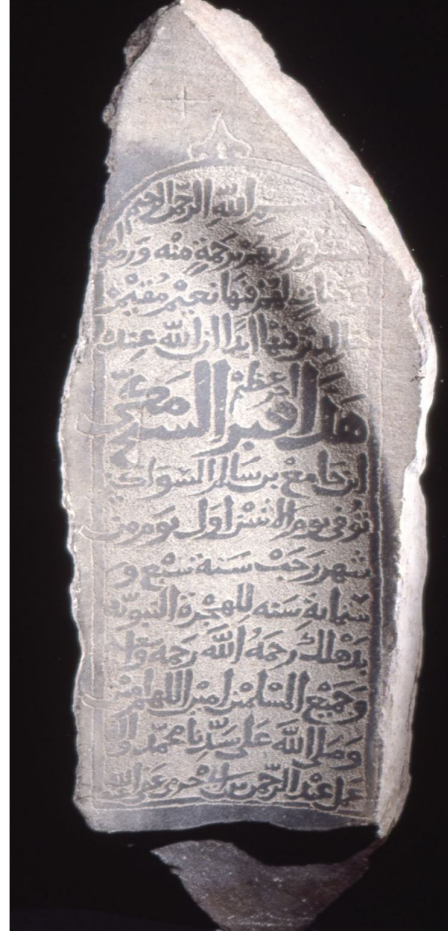 بسم الله الرحمن الرحيم
يبشرهم ربهم برحمة منه ورضوان
وجنات لهم فيها نعيم مقيم
خالدين فيها ابدا ان الله عنده
اجر عظيم
هذا قبر
ابن جامع بن سالم
توفي يوم الاثنين اول يوم من
شهر رجب سنة سبع و
ستماية سنه للهجرة النبوية
بدهلك رحمه الله رحمة
وجميع المسلمين امين اللهم امين
وصلى الله على سيدنا محمد واله
عمل عبد الرحمن